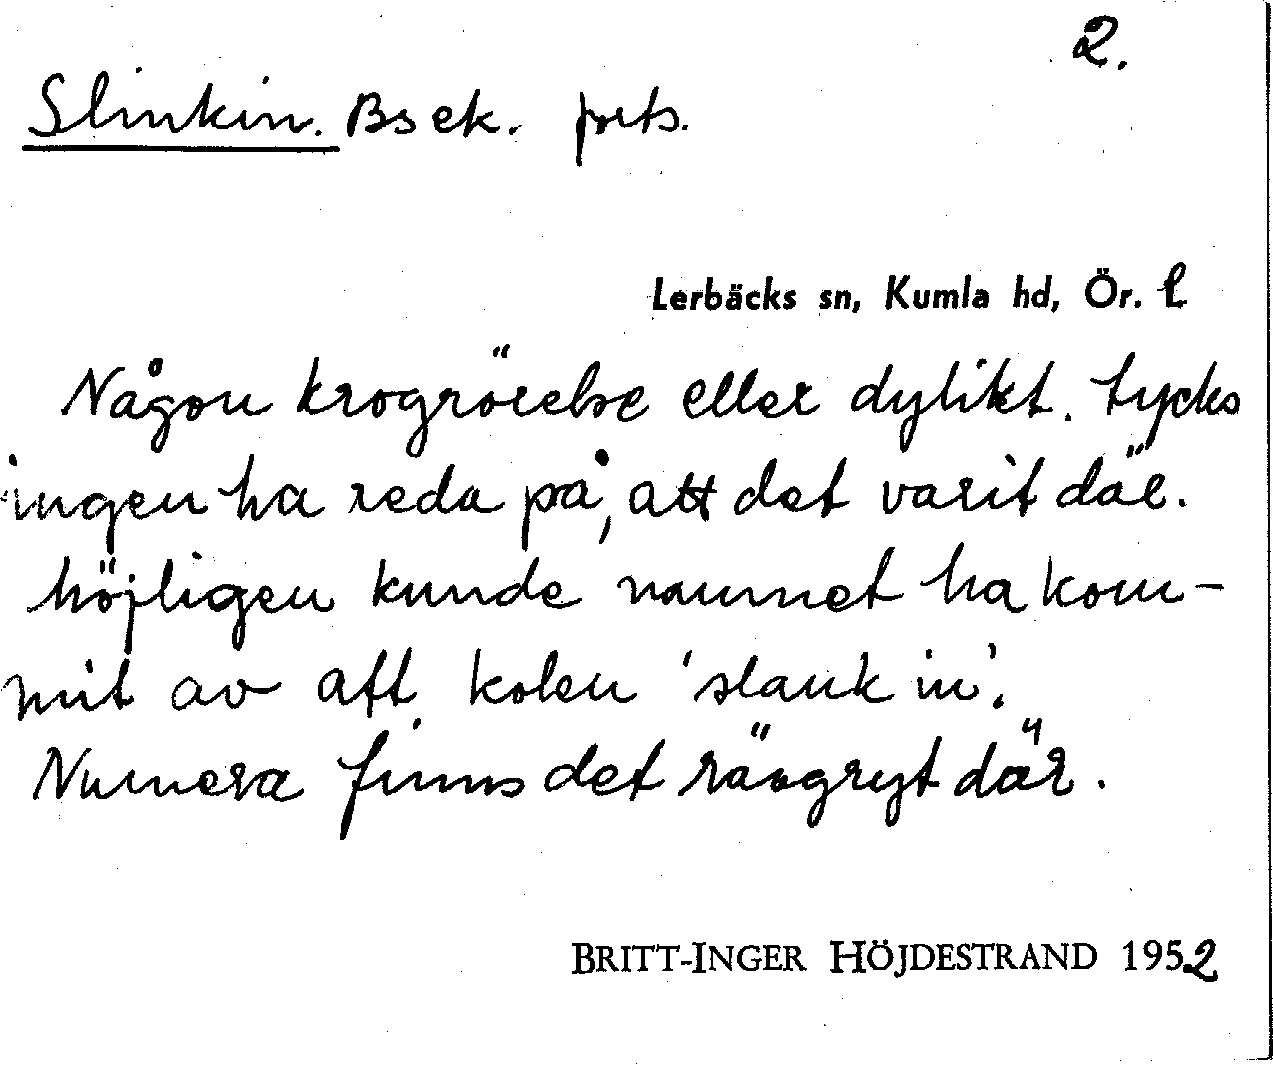 2.
Slinkin. Bs ek. forts.
Lerbäcks sn, Kumla hd, Ör. l
Någon krogrörelse eller dylikt. tycks
ingen ha reda på, att det varit där.
Möjligen kunde namnet ha kom-
mit av att kolen 'slank in'.
Numera finns det rävgryt där.
BRITT-INGER HÖJDESTRAND 1952